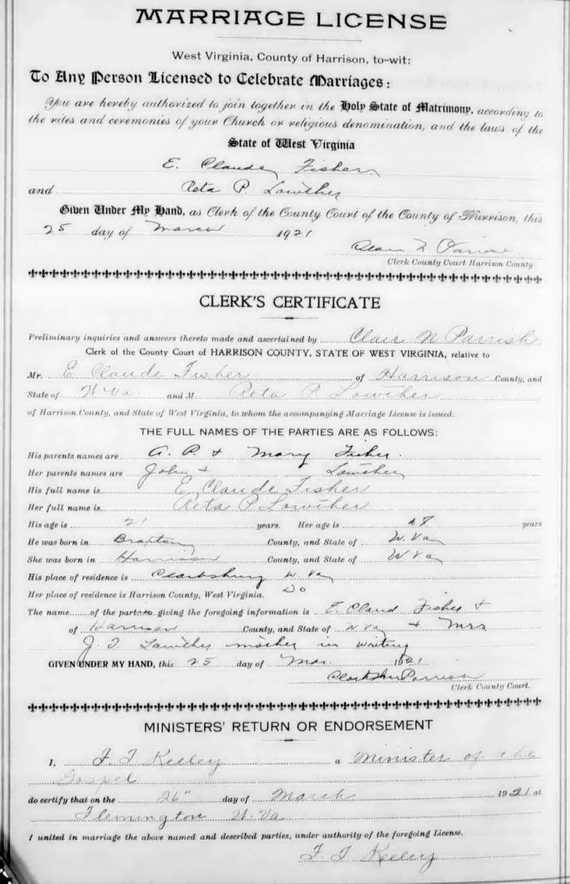 MARRIAGE LICENSE
West Virginia, County of Harrison, to-wit:
To Any Person Licensed to Celebrate Marriages:
You are hereby authorized to join together in the Holy State of Matrimony, according to
the rites and ceremonies of your Church or religious denomination, and the laws of the
State of West Virginia
E. Claude Fisher
and Reta P. Lowther
Given Under My Hand, as Clerk of the County Court of the County of Harrison, this
25 day of March 1921
Clerk County Court Harrison County
CLERK'S CERTIFICATE
Preliminary inquiries and answers thereto made and ascertained by Clair N Parrish
Clerk of the County Court of HARRISON COUNTY, STATE OF WEST VIRGINIA, relative to
Mr. E Claude Fisher of Harrison County, and
State of W Va and M Reta P Lowther
of Harrison County, and State of West Virginia, to whom the accompanying Marriage License is issued.
THE FULL NAMES OF THE PARTIES ARE AS FOLLOWS:
His parents names are A. P. & Mary Fisher.
Her parents names are John & Lowther
His full name is E Claude Fisher
Her full name is Reta P. Lowther
His age is 21 years. Her age is 18 years
He was born in Braxton County, and State of W. Va
She was born in Harrison County, and State of W Va
His place of residence is Clarksburg W. Va
Her place of residence is Harrison County, West Virginia. Do
The name of the parties giving the foregoing information is E. Claud Fisher &
of Harrison County, and State of W Va & Mrs
J. T. Lowther mother in writing
GIVEN UNDER MY HAND, this 25 day of Mar. 1921
Parrish
Clerk County Court.
MINISTERS' RETURN OR ENDORSEMENT
I, F. T Keeley a Minister of the
Gospel
do certify that on the 26" day of March 1921 at
Flemington W. Va
I united in marriage the above named and described parties, under authority of the foregoing License.
F. T Keeley